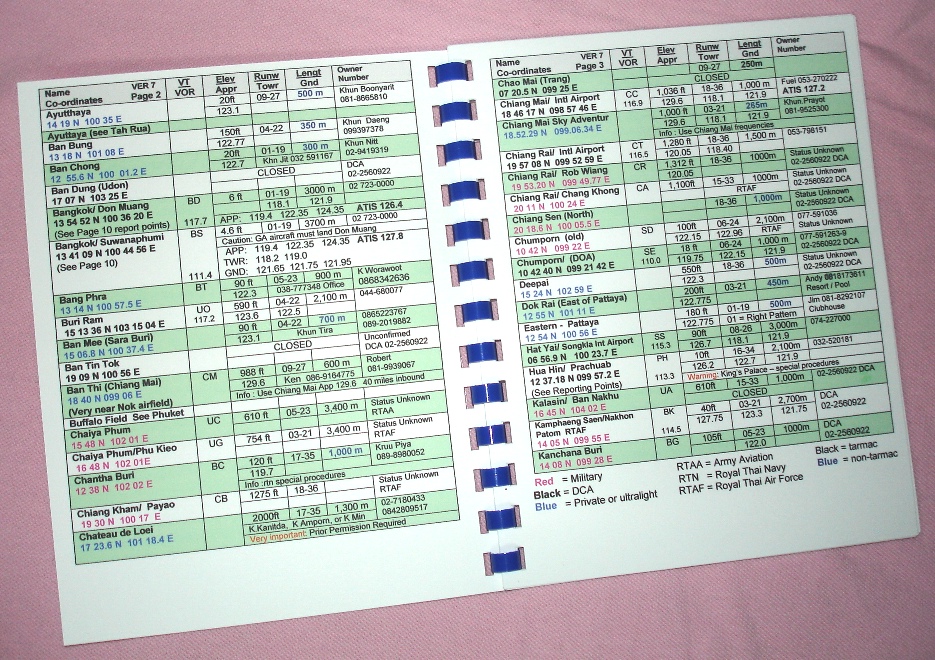 Name VER 7 VT Elev Runw Lengt Owner
Co-ordinates Page 2 VOR Appr Towr Gnd Number
Ayutthaya 20ft 09-27 500 m Khun Boonyarit
14 19 N 100 35 E 123.1 081-8665810
Ayuttaya (see Tah Rua)
Ban Bung 150ft 04-22 350 m Khun Daeng
13 18 N 101 08 E 122.77 099397378
Ban Chong 20ft 01-19 300 m Khun Nitt
12 55.6 N 100 01.2 E 122.7 Khn Jit 032 591167 02-9419319
Ban Dung (Udon) CLOSED DCA
17 07 N 103 25 E 02-2560922
Bangkok/ Don Muang BD 6 ft 01-19 3000 m 02 723-0000
13 54 52 N 100 36 20 E 118.1 121.9
(See Page 10 report points) 117.7 APP: 119.4 122.35 124.35 ATIS 126.4
Bangkok/ Suwanaphumi BS 4.6 ft 01-19 3700 m 02 723-0000
13 41 09 N 100 44 56 E Caution: GA aircraft must land Don Muang
(See Page 10) APP: 119.4 122.35 124.35 ATIS 127.8
TWR: 118.2 119.0
111.4 GND: 121.65 121.75 121.95
Bang Phra BT 90 ft 05-23 900 m K Worawoot
13 14 N 100 57.5 E 122.3 038-777348 Office 0868342636
Buri Ram UO 590 ft 04-22 2,100 m 044-680077
15 13 36 N 103 15 04 E 117.2 123.6 122.5
Ban Mee (Sara Buri) 90 ft 04-22 700 m 0865223767
15 06.8 N 100 37.4 E 123.1 Khun Tira 089-2019882
Ban Tin Tok CLOSED Unconfirmed
19 09 N 100 56 E DCA 02-2560922
Ban Thi (Chiang Mai) CM 988 ft 09-27 600 m Robert
18 40 N 099 06 E 129.6 Ken 086-9164775 081-9939067
(Very near Nok airfield) Info : Use Chiang Mai App 129.6 40 miles inbound
Buffalo Field See Phuket
Chaiya Phum UC 610 ft 05-23 3,400 m Status Unknown
15 48 N 102 01 E RTAA
Chaiya Phum/Phu Kieo UG 754 ft 03-21 3,400 m Status Unknown
16 48 N 102 01E RTAF
Chantha Buri BC 120 ft 17-35 1,000 m Kruu Piya
12 38 N 102 02 E 119.7 089-8980052
Info :rtn special procedures
Chiang Kham/ Payao CB 1275 ft 18-36 Status Unknown
19 30 N 100 17 E RTAF
Chateau de Loei 2000ft 17-35 1,300 m 02-7180433
17 23.6 N 101 18.4 E K Kanitda, K Amporn, or K Min 0842809517
Very important: Prior Permission Required
Name VER 7 VT Elev Runw Lengt Owner
Co-ordinates Page 3 VOR Appr Towr Gnd Number
Chao Mai (Trang) 09-27 250m
07 20.5 N 099 25 E CLOSED
Chiang Mai/ Intl Airport CC 1,036 ft 18-36 1,000 m Fuel 053-270222
18 46 17 N 098 57 46 E 116.9 129.6 118.1 121.9 ATIS 127.2
Chiang Mai Sky Adventur 1,000 ft 03-21 265m Khun.Prayot
18.52.29 N 099.06.34 E 129.6 118.1 121.9 081-9525300
Info : Use Chiang Mai frequencies
Chiang Rai/ Intl Airport CT 1,280 ft 18-36 1,500 m 053-798151
19 57 08 N 099 52 59 E 116.5 120.05 118.40
Chiang Rai/ Rob Wiang CR 1,312 ft 18-36 1000m Status Unknown
19 53.20 N 099 49.77 E 120.05 02-2560922 DCA
Chiang Rai/ Chang Khong CA 1,100ft 15-33 1000m Status Unknown
20 11 N 100 24 E RTAF
Chiang Sen (North) 18-36 1,000m Status Unknown
20 18.6 N 100 05.5 E 02-2560922 DCA
Chumporn (old) SD 100ft 06-24 2,100m 077-591036
10 42 N 099 22 E 122.15 122.96 RTAF Status Unknown
Chumporn/ (DOA) SE 18 ft 06-24 1,000 m 077-591263-9
10 42 40 N 099 21 42 E 110.0 119.75 122.15 121.9 02-2560922 DCA
Deepai 550ft 18-36 500m Status Unknown
15 24 N 102 59 E 122.3 02-2560922 DCA
Dok Rai (East of Pattaya) 200ft 03-21 450m Andy 0818173611
12 55 N 101 11 E 122.775 Resort / Pool
Eastern - Pattaya 180 ft 01-19 500m Jim 081-8292107
12 54 N 100 56 E 122.775 01 = Right Pattern Clubhouse
Hat Yai/ Songkla Int Airport SS 90ft 08-26 3,000m 074-227000
06 56.9 N 100 23.7 E 115.3 126.7 118.1 121.9
Hua Hin/ Prachuab PH 10ft 16-34 2,100m 032-520181
12 37.18 N 099 57.2 E 126.2 122.7 121.9
(See Reporting Points) 113.3 Warning: King's Palace – special procedures
Kalasin/ Ban Nakhu UA 610ft 15-33 1,000m 02-2560922 DCA
16 45 N 104 02 E CLOSED
Kamphaeng Saen/Nakhon BK 40ft 03-21 2,700m DCA
Patom RTAF 127.75 123.3 121.75 02-2560922
14 05 N 099 55 E 114.5
Kanchana Buri BG 105ft 05-23 1000m DCA
14 08 N 099 28 E 122.0 02-2560922
Red = Military RTAA = Army Aviation Black = tarmac
Black = DCA RTN = Royal Thai Navy Blue = non-tarmac
Blue = Private or ultralight RTAF = Royal Thai Air Force